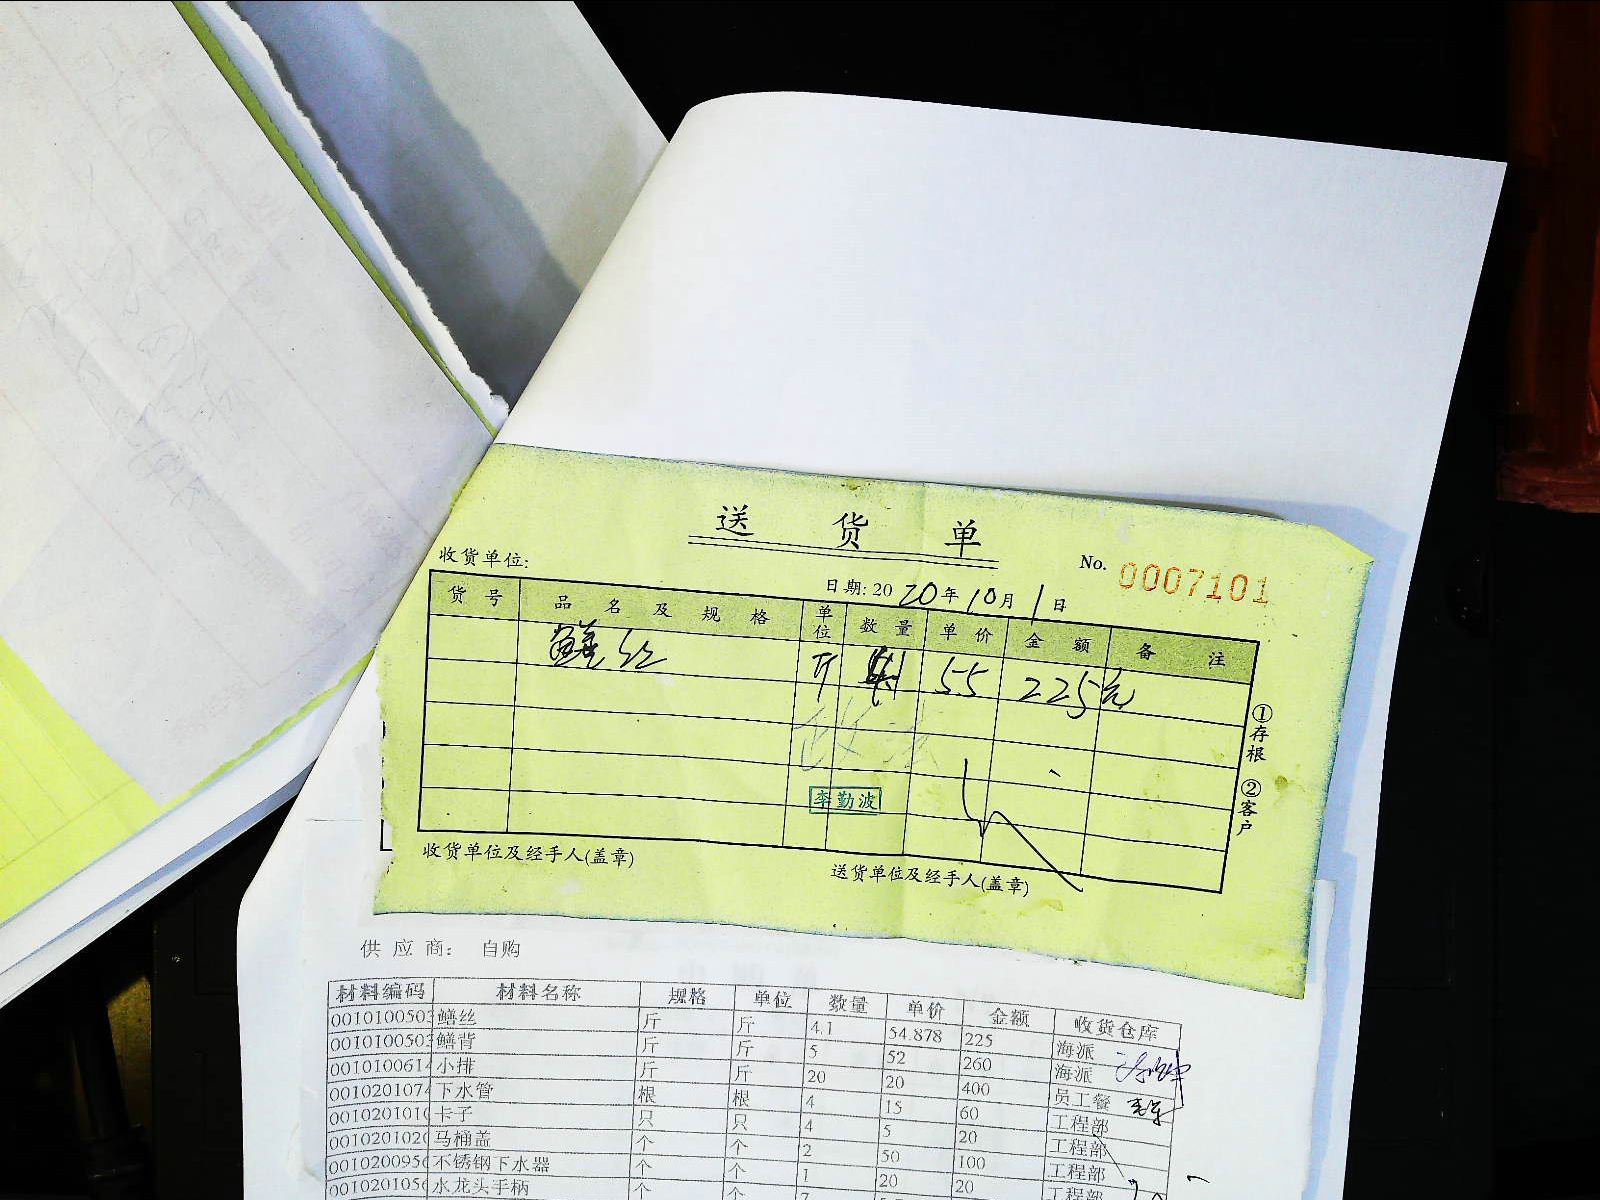 送 货 单
收货单位:
No. 0007101
日期: 2020年10月1日
货号 品名及规格 单位 数量 单价 金额 备注
鳝丝 斤 55 225元
李勤波
①存根
②客户
收货单位及经手人(盖章) 送货单位及经手人(盖章)
供应商: 自购
材料编码 材料名称 规格 单位 数量 单价 金额 收货仓库
0010100503 鳝丝 斤 斤 4.1 54.878 225 海派
0010100503 鳝背 斤 斤 5 52 260 海派
001010061 小排 斤 斤 20 20 400 员工餐
001020107 下水管 根 根 4 15 60 工程部
001020101 卡子 只 只 4 5 20 工程部
001020102 马桶盖 个 个 2 50 100 工程部
001020095 不锈钢下水器 个 个 1 20 20 工程部
001020105 水龙头手柄 个 个